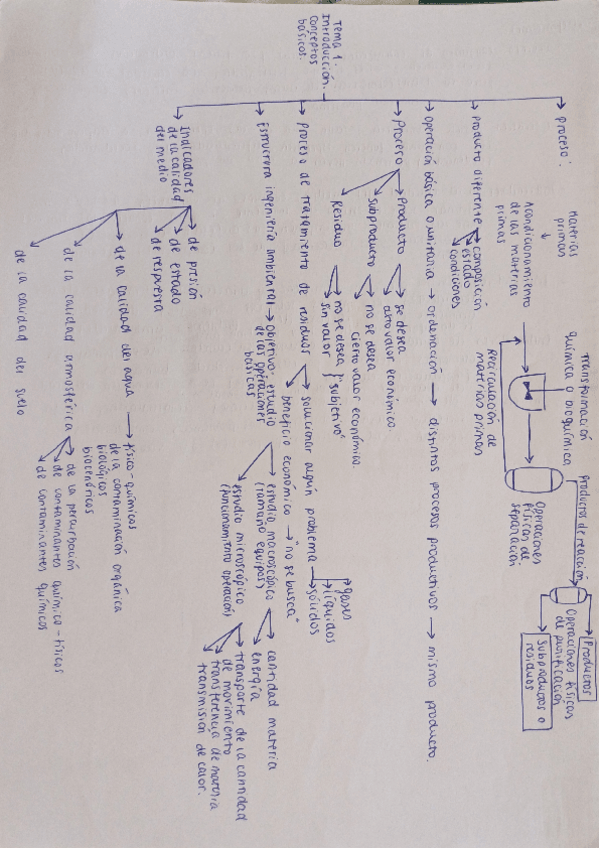 Tema 1.
Introducción.
Conceptos
básicos.
proceso:
Materias
primas
Acondicionamiento
de las materias
primas
Transformación
química o bioquímica
Recirculación de
materias primas
productos de reacción
Operaciones
físicas de
separación
Operaciones físicas
de purificación
Productos
Subproductos o
residuos
producto diferente
composición
estado
condiciones
operación básica o unitaria → ordenación → distintos procesos productivos → mismo producto.
Proceso
Producto
se desea
alto valor económico.
Subproducto
no se desea
cierto valor económico.
Residuo
no se desea
sin valor
"subjetivo"
proceso de tratamiento de residuos
solucionar algún problema
gases
líquidos
sólidos
beneficio económico → "no se busca"
Estructura ingeniería ambiental → objetivo: estudio
de las operaciones
básicas
estudio macroscópico
(tamaño equipos)
cantidad materia
energía
estudio microscópico
(funcionamiento operación)
transporte de la cantidad
de movimiento
transferencia de materia
transmisión de calor.
Indicadores
de la calidad
del medio
de presión
de estado
de respuesta
de la calidad del agua
físico-químicos
de la contaminación orgánica
biológicos
biocenóticos
de la calidad atmosférica
de la perturbación
de contaminantes químico-físicos
de contaminantes químicos
de la calidad del suelo